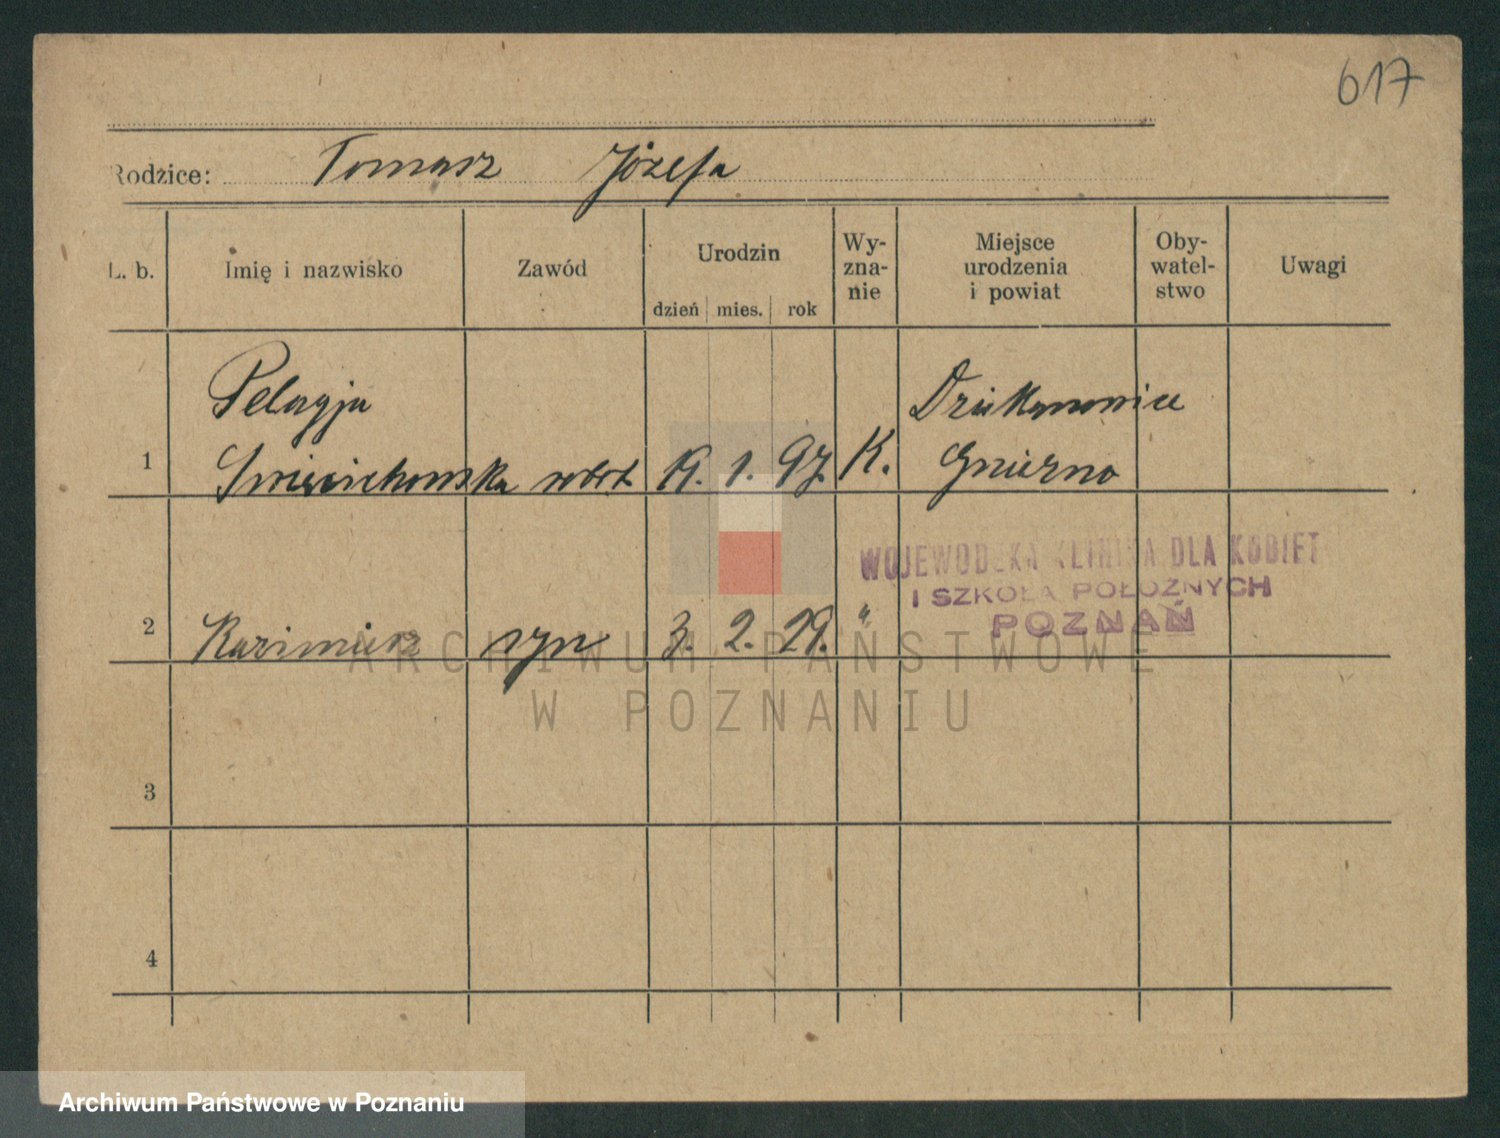 617
Rodzice: Tomasz Józefa
L. b. Imię i nazwisko Zawód Urodzin dzień mies. rok Wy-zna-nie Miejsce urodzenia i powiat Oby-watel-stwo Uwagi
Pelagja Dziekanowice
1 robot 19. 1. 97. K. Gniezno
WOJEWÓDZKA KLINIKA DLA KOBIET
I SZKOŁA POŁOŻNYCH
POZNAŃ
2 Kazimierz syn 3. 2. 29. "
ARCHIWUM PAŃSTWOWE
W POZNANIU
3
4
Archiwum Państwowe w Poznaniu